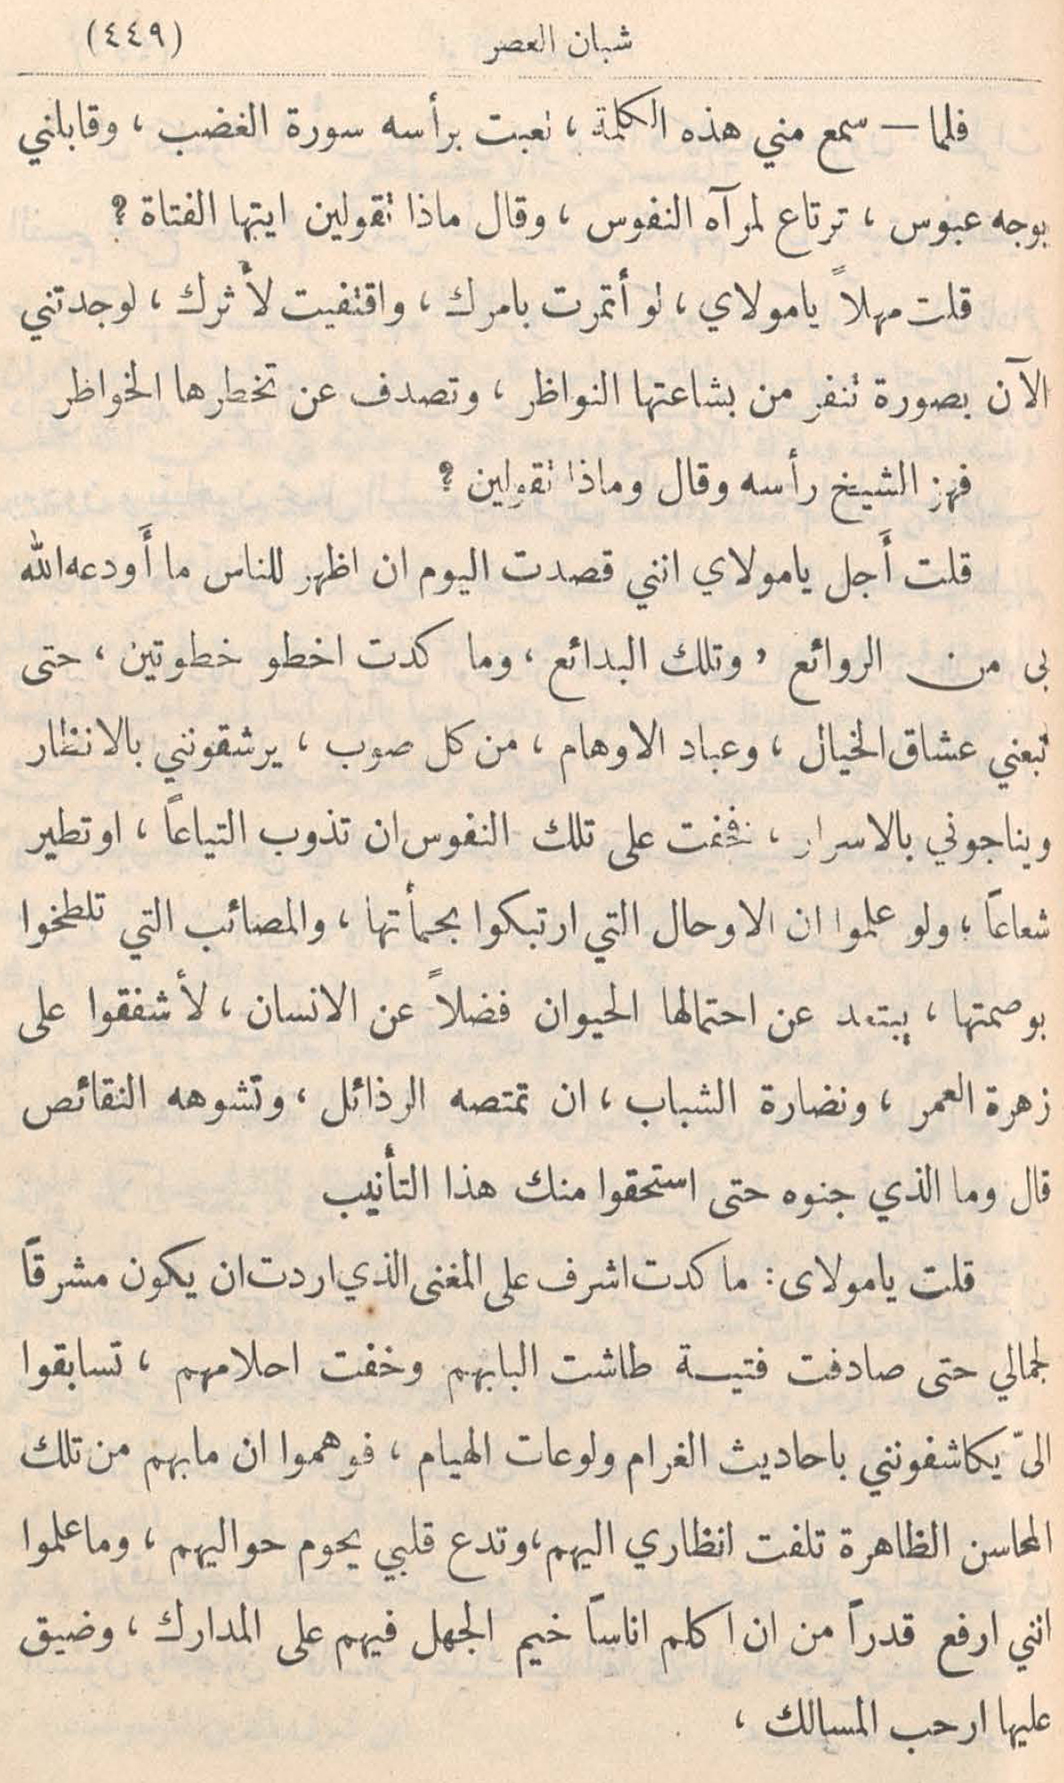 شبان العصر (٤٤٩)
فلما — سمع مني هذه الكلمة ، لعبت برأسه سورة الغضب ، وقابلني
بوجه عبوس ، ترتاع لمرآه النفوس ، وقال ماذا تقولين ايتها الفتاة ؟
قلت مهلاً يامولاي ، لو أتمرت بامرك ، واقتفيت لأثرك ، لوجدتني
الآن بصورة تنفر من بشاعتها النواظر ، وتصدف عن تخطرها الخواطر
فهز الشيخ رأسه وقال وماذا تقولين ؟
قلت أَجل يامولاي انني قصدت اليوم ان اظهر للناس ما أَودعه الله
بي من الروائع ، وتلك البدائع ، وما كدت اخطو خطوتين ، حتى
تبعني عشاق الخيال ، وعباد الاوهام ، من كل صوب ، يرشقونني بالانظار
ويناجوني بالاسرار ، فخفت على تلك النفوس ان تذوب التياعاً ، او تطير
شعاعاً ؛ ولو علموا ان الاوحال التي ارتبكوا بحمأتها ، والمصائب التي تلطخوا
بوصمتها ، يبتعد عن احتمالها الحيوان فضلاً عن الانسان ، لأشفقوا على
زهرة العمر ، ونضارة الشباب ، ان تمتصه الرذائل ، وتشوهه النقائص
قال وما الذي جنوه حتى استحقوا منك هذا التأنيب
قلت يامولاى : ما كدت اشرف على المغنى الذي اردت ان يكون مشرقاً
لجمالي حتى صادفت فتيـة طاشت البابهم وخفت احلامهم ، تسابقوا
اليّ يكاشفونني باحاديث الغرام ولوعات الهيام ، فوهموا ان مابهم من تلك
المحاسن الظاهرة تلفت انظاري اليهم ، وتدع قلبي يحوم حواليهم ، وما علموا
انني ارفع قدراً من ان اكلم اناساً خيم الجهل فيهم على المدارك ، وضيق
عليها ارحب المسالك ،